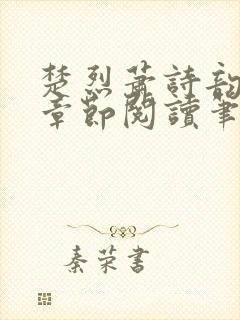 楚烈蕭詩韵
章節閱讀筆
秦荣書